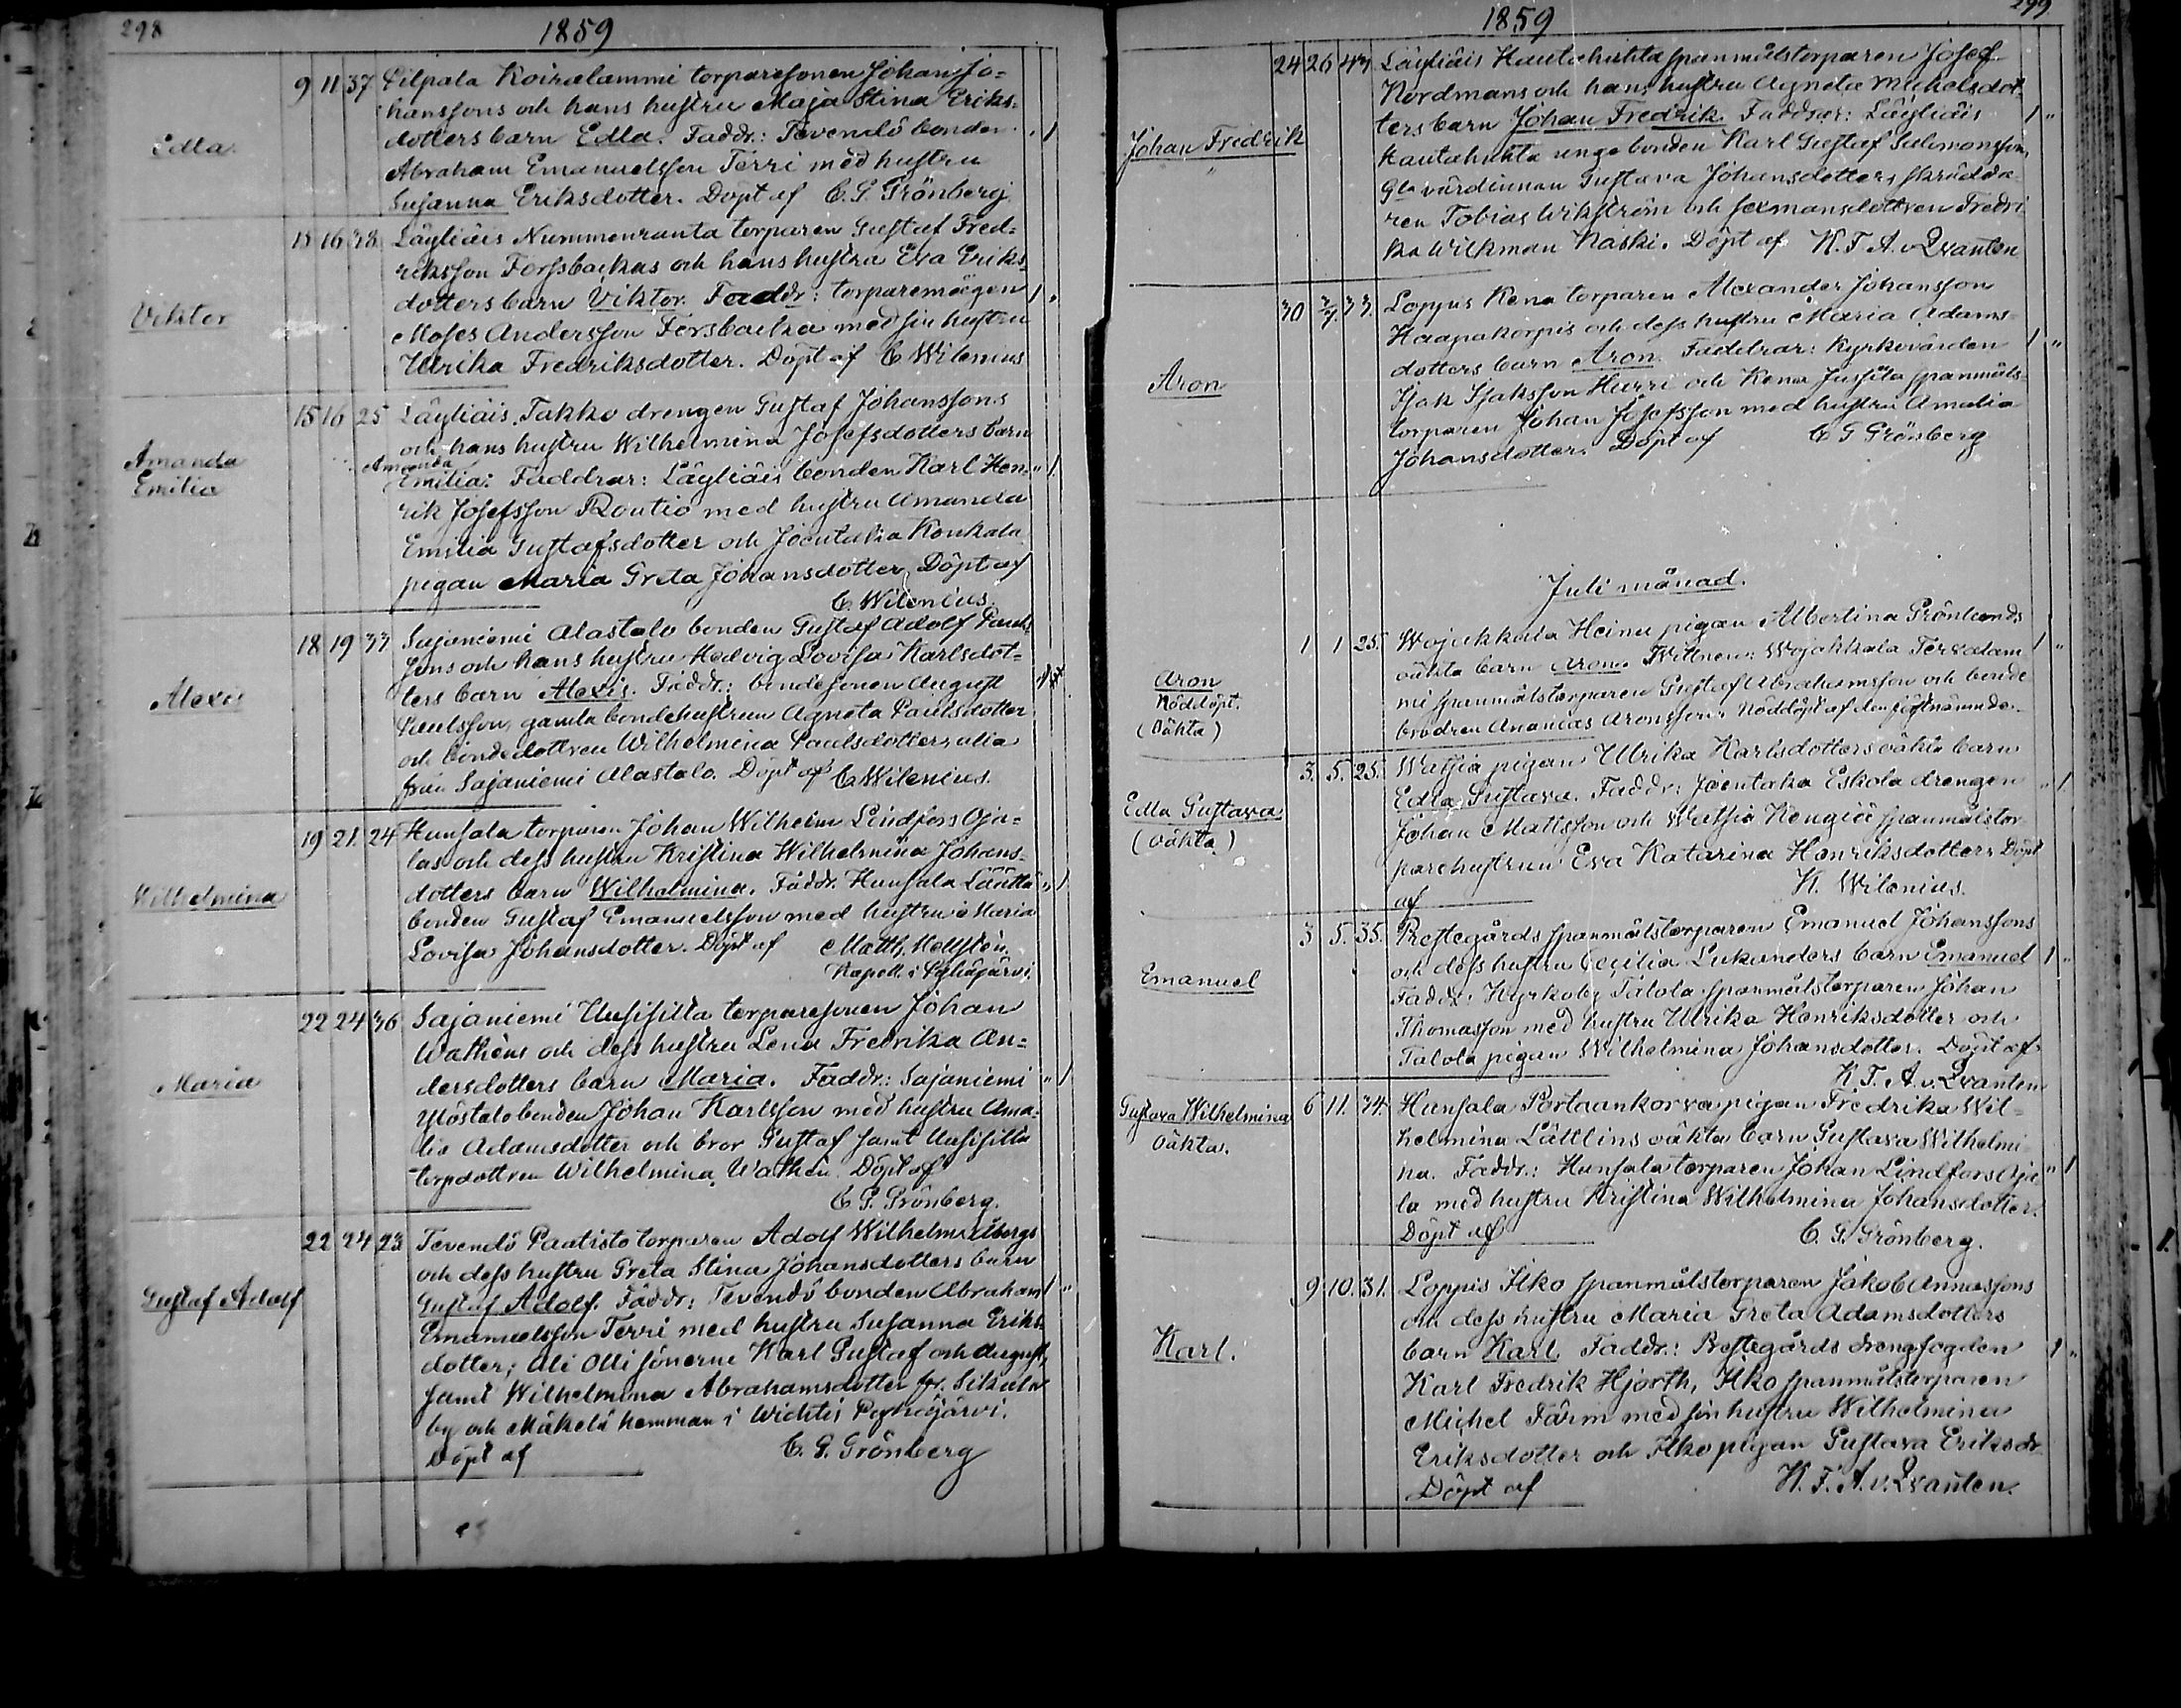 298
1859
Edla
9 11 37 Pilpala Koiralammi torparesonen Johan Jo=
hanssons och hans hustru Maja Stina Eriks=
dotters barn Edla. Faddr.: Tevendö bonden " 1
Abraham Emanuelsson Terri med hustru
Susanna Eriksdotter. Döpt af C. G. Grönberg
Viktor
15 16 38 Läyliäis Nummenranta torparen Gustaf Fred=
riksson Forssbackas och hans hustru Eva Eriks=
dotters barn Viktor. Faddr: torparemågen 1 "
Moses Andersson Forsbacka med sin hustru
Ulrika Fredriksdotter. Döpt af C Wilenius
Amanda
Emilia
15 16 25 Läyliäis Takko drengen Gustaf Johanssons
och hans hustru Wilhelmina Josefsdotters barn
Amanda
Emilia: Faddrar: Läyliäis bonden Karl Hen= " 1
rik Josefsson Routio med hustru Amanda
Emilia Gustafsdotter och Joentaka Konkala
pigan Maria Greta Johansdotter, Döpt af
C. Wilenius.
Alexis
18 19 33 Sajaniemi Alastalo bonden Gustaf Adolf Pauls=
sons och hans hustru Hedvig Lovisa Karlsdot=
ters barn Alexis. Faddr.: bondesonen August
Paulsson, gamla bondehustrun Agneta Paulsdotter
och bondedottren Wilhelmina Paulsdotter, alla
från Sajaniemi Alastalo. Döpt af C. Wilenius.
Wilhelmina
19 21 24 Hunsala torparen Johan Wilhelm Lindfors Oja=
las och dess hustru Kristina Wilhelmina Johans=
dotters barn Wilhelmina. Faddr. Hunsala Länttä " 1
bonden Gustaf Emanuelsson med hustru Maria
Lovisa Johansdotter. Döpt af Matth. Hellstén.
Kapell. i Pyhäjärvi.
Maria
22 24 36 Sajaniemi Uusisilta torparesonen Johan
Wathéns och dess hustru Lena Fredrika An=
dersdotters barn Maria. Faddr.: Sajaniemi " 1
Ylöstalo bonden Johan Karlsson med hustru Ama=
lia Adamsdotter och bror Gustaf samt Uusisilta
torpdottren Wilhelmina Wathén. Döpt af
C. G. Grönberg.
Gustaf Adolf
22 24 23 Tevendö Paatisto torparen Adolf Wilhelm
och dess hustru Greta Stina Johansdotters barn
Gustaf Adolf. Faddr: Tevendö bonden Abraham 1 "
Emanuelsson Terri med hustru Susanna Eriks=
dotter; Ali Olli sönerne Karl Gustaf och August,
samt Wilhelmina Abrahamsdotter fr. Sikala
by och Mäkelä hemman i Wichtis Pyhäjärvi.
Döpt af C. G. Grönberg
1859
299
Johan Fredrik
24 26 43 Läyliäis Hautahuhta spanmålstorparen Josef
Nordmans och hans hustru Agneta Michelsdot=
ters barn Johan Fredrik. Faddrar: Läyliäis 1 "
Kautahuhta unga bonden Karl Gustaf Salomonsson,
Gla värdinnan Gustava Johansdotter, skrädda
ren Tobias Wikström och sexmansdottren Fredri
ka Wilkman Kaski. Döpt af K. F. A. v. Qvanten
Aron
30 3/7. 33. Loppis Kena torparen Alexander Johansson
Haapakorpis och dess hustru Maria Adams=
dotters barn Aron. Faddrar: Kyrkovärden 1 "
Isak Isaksson Hurri och Kena Jussila spanmåls=
torparen Johan Josefsson med hustru Amalia
Johansdotter. Döpt af C G Grönberg
Juli månad.
Aron
Nöddöpt.
(Oäkta)
1 1 25. Wojakkala Heinu pigan Albertina Grönlunds
oäkta barn Aron. Wittnen: Wojakkala Tervalam 1 "
mi spanmålstorparen Gustaf Abrahamsson och bonde
brodren Ananias Aronsson. Nöddöpt af den sistnämnde.
Edla Gustava
(oäkta)
3. 5. 25. Watsia pigan Ulrika Karlsdotters oäkta barn
Edla Gustava. Faddr: Joentaka Eskola drengen " 1
Johan Mattsson och Watsia Kengiö spanmålstor
parehustrun Eva Katarina Henriksdotter. Döpt
af K. Wilenius.
Emanuel
3 5. 35. Prestegårds spanmålstorparen Emanuel Johanssons
och dess hustru Cecilia Lukanders barn Emanuel 1 "
Faddr: Kyrkoby Talola spanmålstorparen Johan
Thomasson med hustru Ulrika Henriksdotter och
Talola pigan Wilhelmina Johansdotter. Döpt af
K. F. A. v. Qvanten
Gustava Wilhelmina
Oäkta.
6 11. 34. Hunsala Portaankorva pigan Fredrika Wil=
helmina Lättlins oäkta barn Gustava Wilhelmi
na. Faddr.: Hunsala torparen Johan Lindfors Oja " 1
la med hustru Kristina Wilhelmina Johansdotter.
Döpt af C. G. Grönberg.
Karl.
9 10. 31. Loppis Ilko spanmålstorparen Jakob Annassons
och dess hustru Maria Greta Adamsdotters
barn Karl. Faddr.: Prestegårds drengfogden 1 "
Karl Fredrik Hjorth, Ilko spanmålstorparen
Michel Färm med sin hustru Wilhelmina
Eriksdotter och Ilko pigan Gustava Eriksdr
Döpt af K. F. A. v. Qvanten.